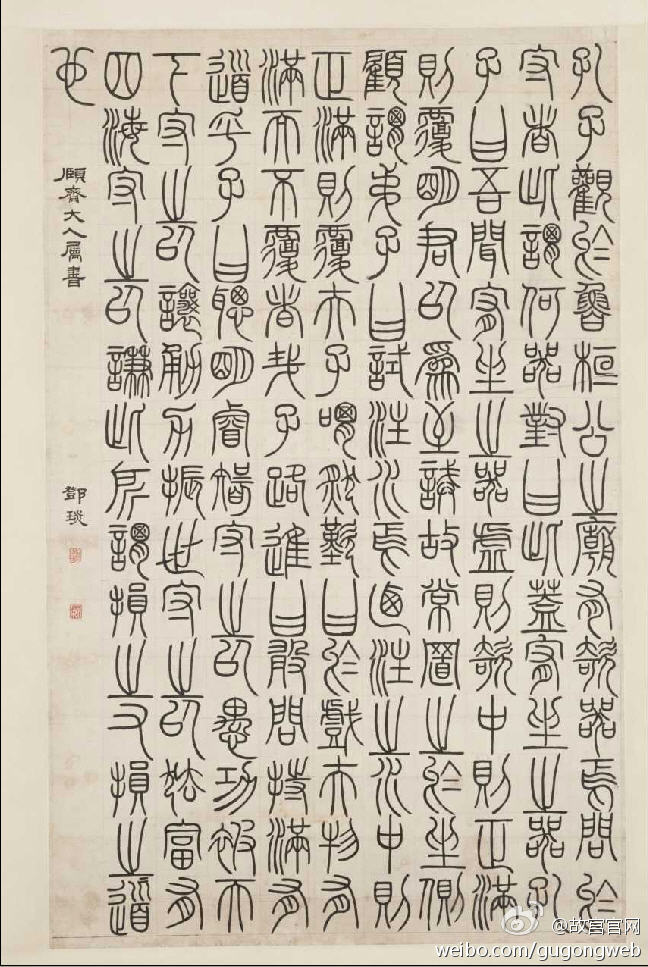 孔子觀於魯桓公之廟有欹器焉問於
守者此謂何器對曰此蓋宥坐之器孔
子曰吾聞宥坐之器虛則欹中則正滿
則覆明君以為至誡故常置之於坐側
顧謂弟子曰試注水焉迺注之水中則
正滿則覆夫子喟然歎曰於戲夫物有
滿而不覆者哉子路進曰敢問持滿有
道乎子曰聰明睿智守之以愚功被天
下守之以讓勇力振世守之以怯富有
四海守之以謙此所謂損之又損之道
也
頤齊大人屬書
鄧琰
@故宫官网
weibo.com/gugongweb